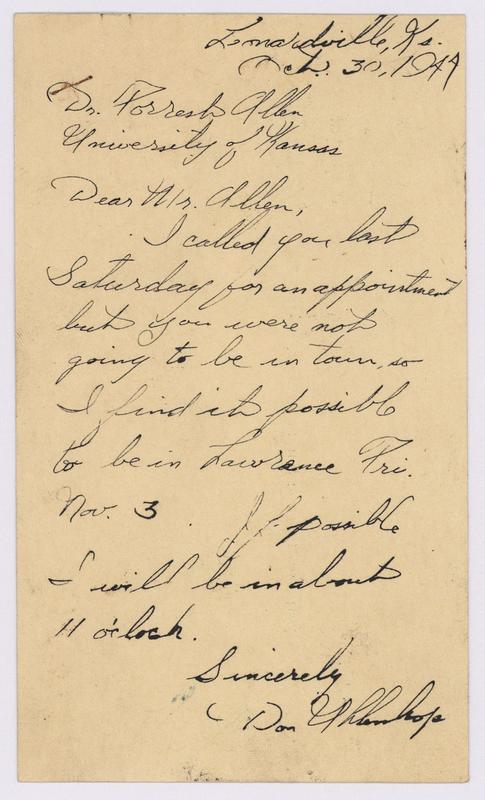 Leonardville, Ks.
Oct. 30, 1944
Dr. Forrest Allen
University of Kansas
Dear Mr. Allen,
I called you last
Saturday for an appointment
but you were not
going to be in town, so
I find it possible
to be in Lawrence Fri.
Nov. 3. If possible
I will be in about
11 o'clock.
Sincerely
Don Uhlenhop